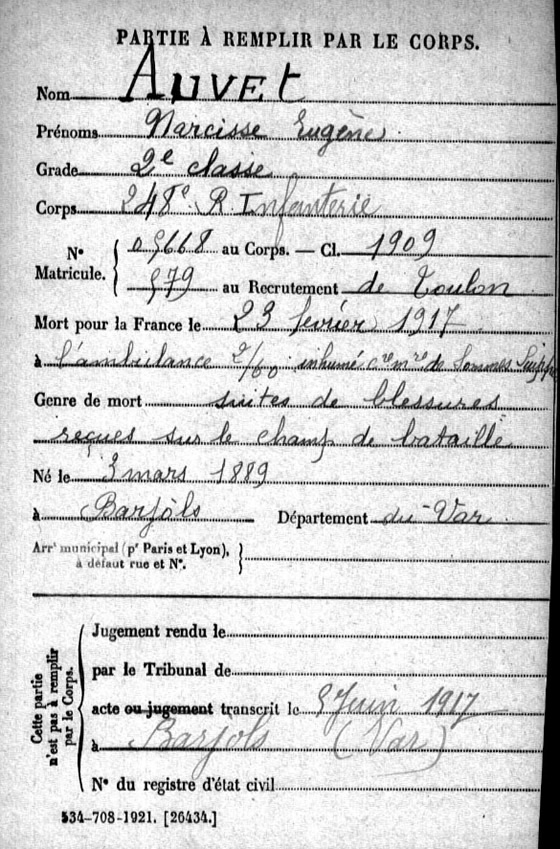 PARTIE À REMPLIR PAR LE CORPS.
Nom AUVEt
Prénoms Narcisse Eugène
Grade 2e classe
Corps 248e R. Infanterie
N° Matricule. { 05668 au Corps. — Cl. 1909
579 au Recrutement de Toulon
Mort pour la France le 23 fevrier 1917
à l'ambulance 2/60 inhumé cre mre de Sommes Suippe
Genre de mort suites de blessures
reçues sur le champ de bataille
Né le 3 mars 1889
à Barjols Département du Var
Arrt municipal (pr Paris et Lyon), à défaut rue et N°. }
Cette partie n'est pas à remplir par le Corps. {
Jugement rendu le
par le Tribunal de
acte ou jugement transcrit le 5 Juin 1917
à Barjols (Var)
N° du registre d'état civil
534-708-1921. [26434.]